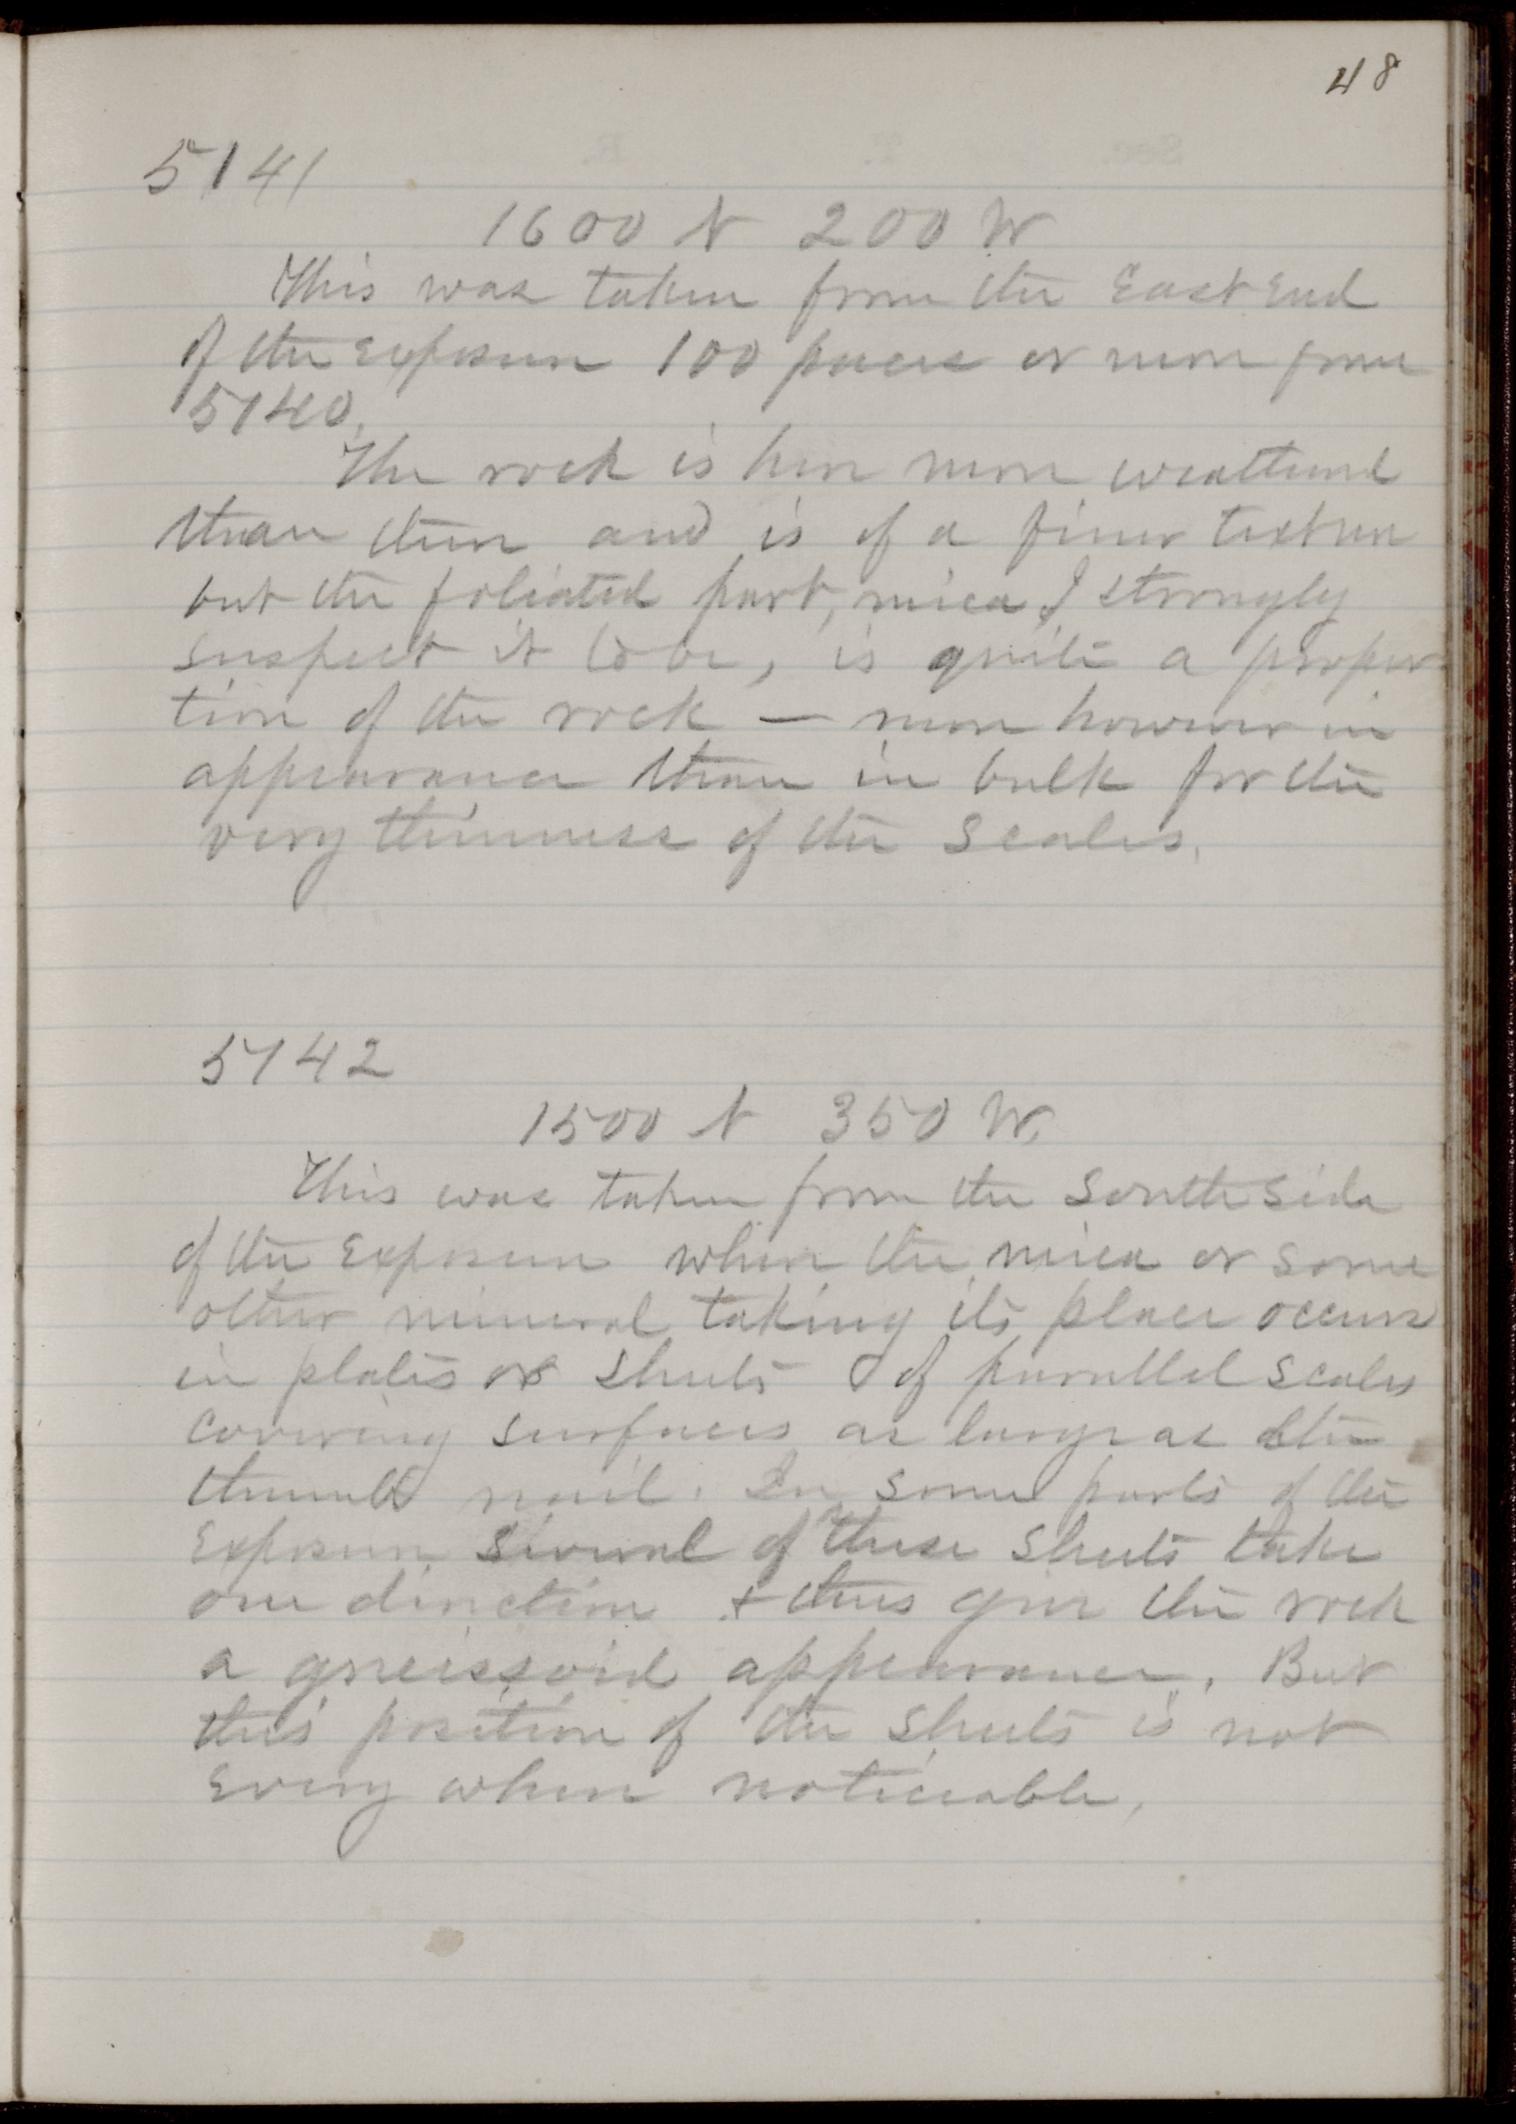 48
5141
1600 N 200 W
This was taken from the East End
of the exposure 100 paces or more from
5140.
The rock is here more weathered
than there and is of a finer texture
but the foliated part, mica I strongly
suspect it to be, is quite a propor
tion of the rock — more however in
appearance than in bulk for the
very thinness of the scales.
5142
1500 N 350 W.
This was taken from the South side
of the Exposure where the mica or some
other mineral taking its place occurs
in plates or sheets of parallel scales
covering surfaces as large as the
thumb nail. In some parts of the
Exposure several of these sheets take
one direction & thus give the rock
a gneissoid appearance. But
this position of the sheets is not
every where noticeable.